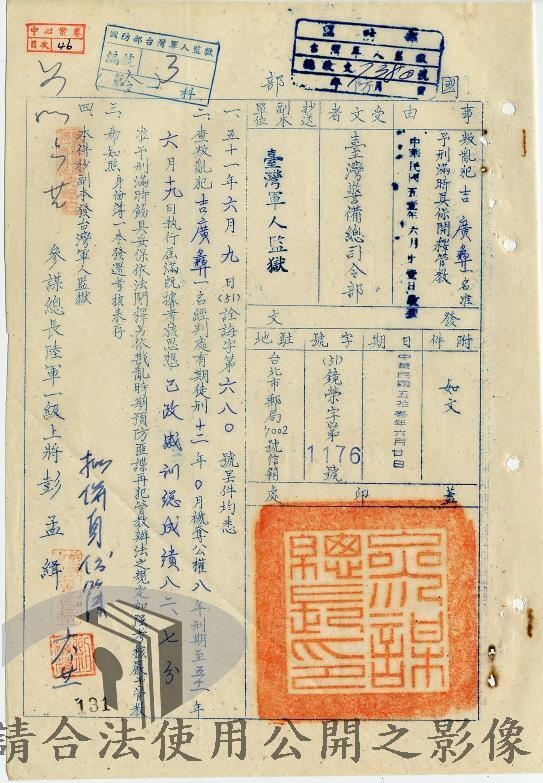 中心檔卷
目次 46
國防部台灣軍人監獄
編號 3 科
台灣軍人監獄
總收文 7380 號
國防部
事由
叛亂犯吉廣彝一名准
予刑滿時具保開釋管教
受文者
臺灣警備總司令部
抄送副本單位
臺灣軍人監獄
中華民國五十一年六月
附件
如文
發文
日期
中華民國五十一年六月廿日
字號
(51)鏡榮字第1176號
駐地
台北市郵局7002號信箱
蓋印處
參謀總長印
一、五十一年六月九日(51)詮誨字第六八〇號呈件均悉
二、查叛亂犯吉廣彝一名經判處有期徒刑十二年0月褫奪公權八年刑期至五十一年
六月九日執行屆滿既據考核思想已改感訓總成績八二、七分
准予刑滿時飭具妥保依法開釋另依戡亂時期預防匪諜再犯管教辦法之規定加強考核嚴予管教
三、希知照身份簿一本發還考核表存
四、本件抄副本發台灣軍人監獄
參謀總長陸軍一級上將彭孟緝
131
請合法使用公開之影像